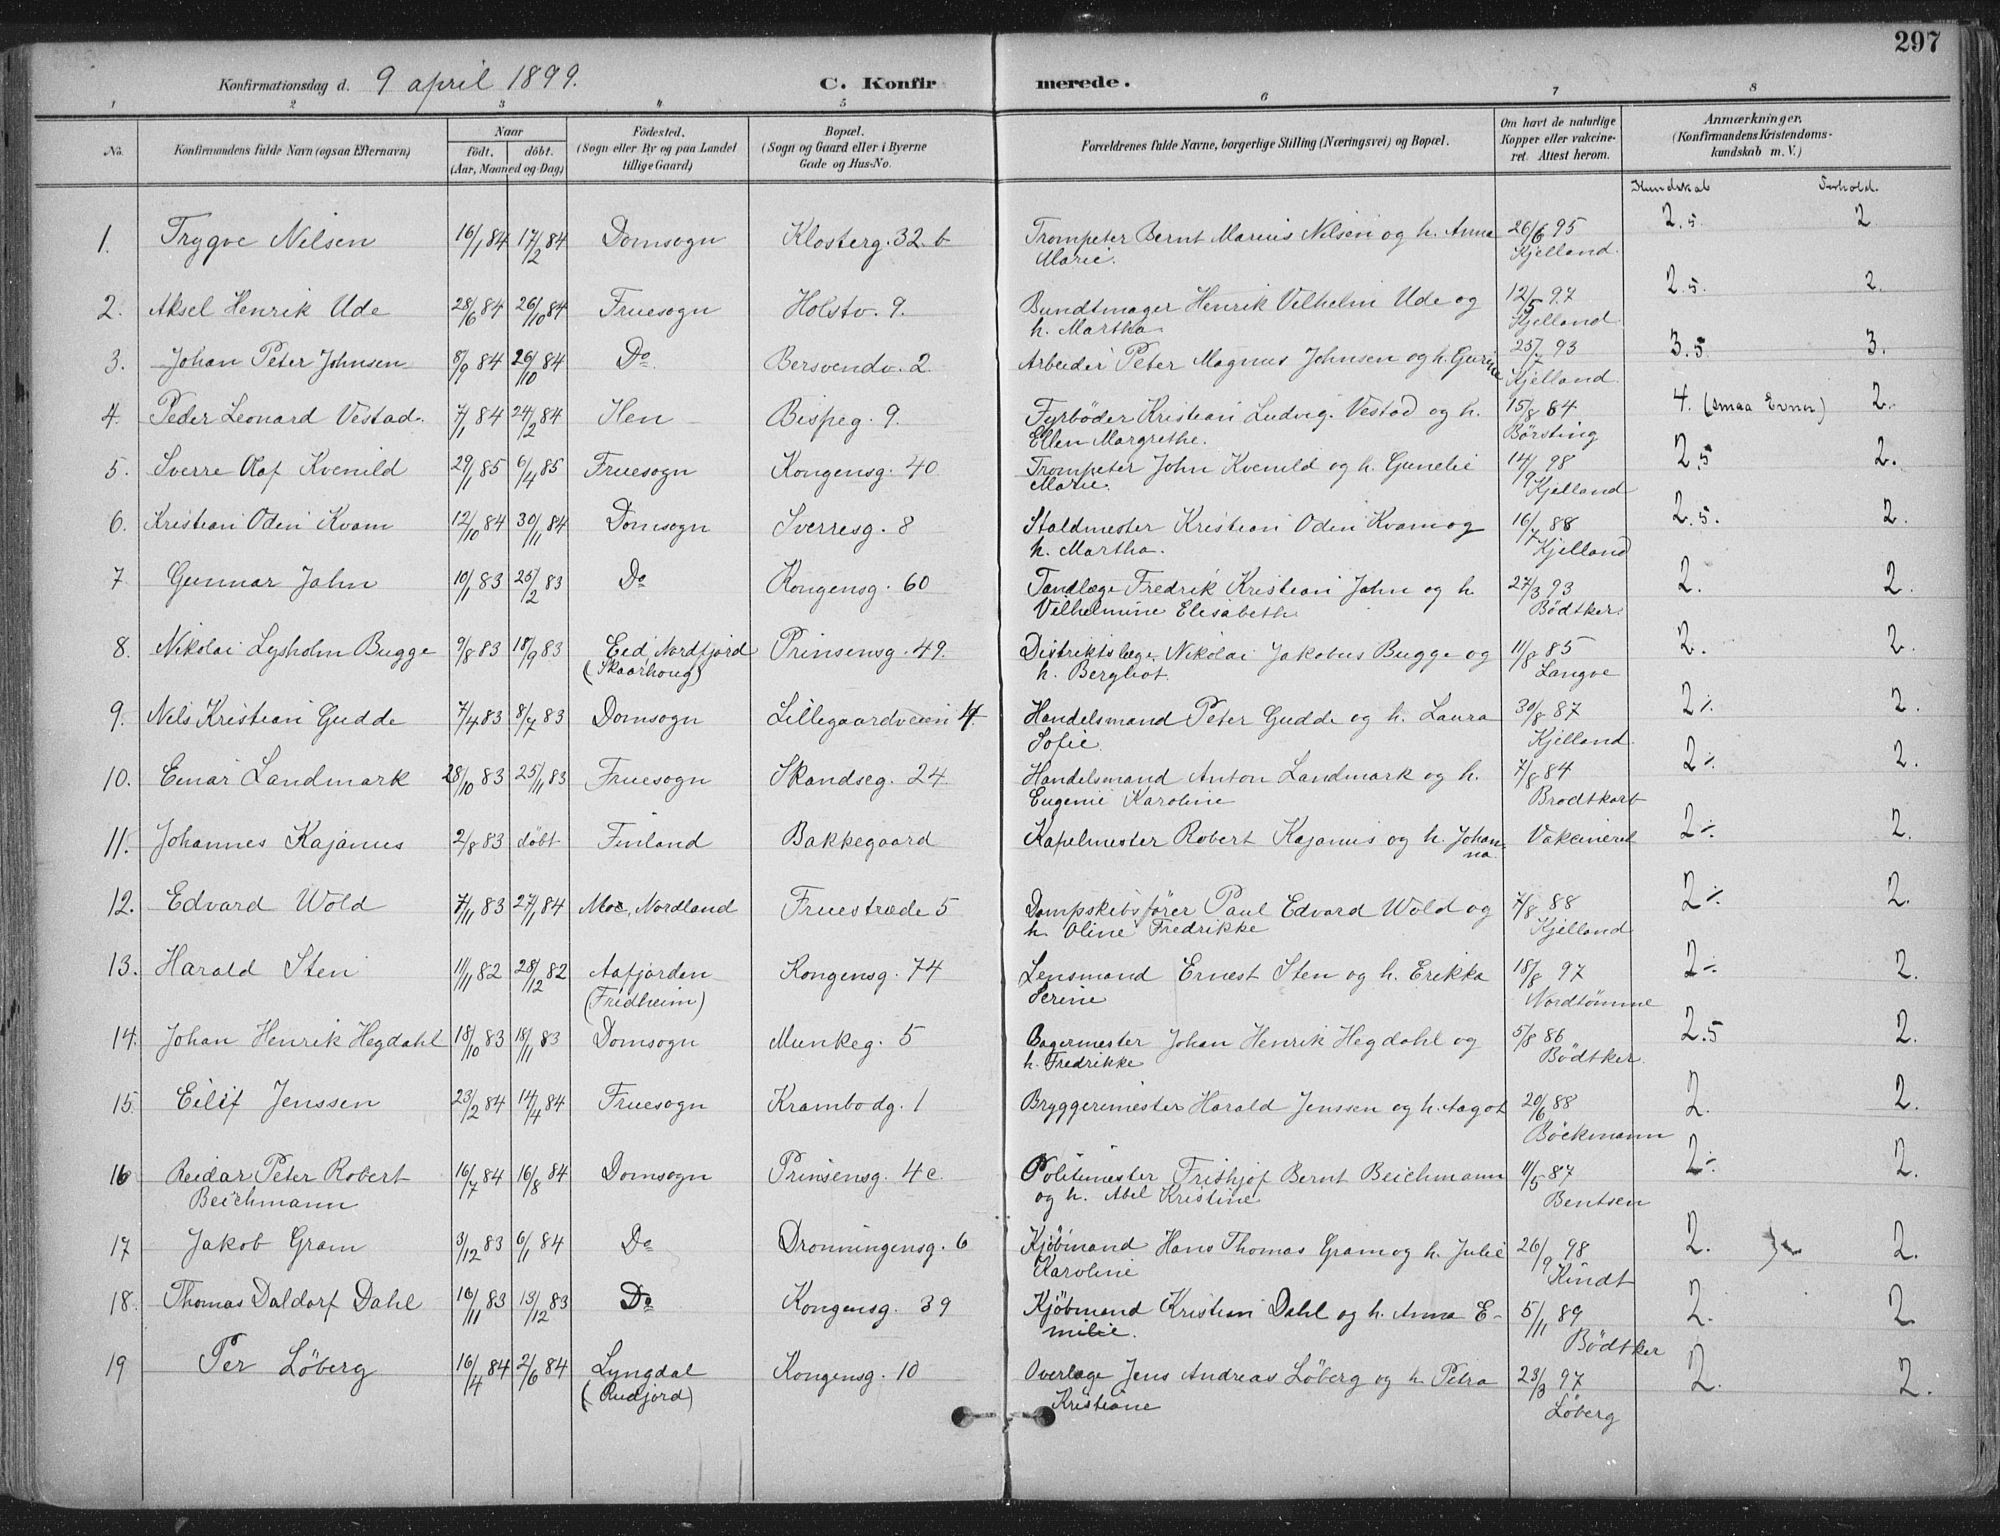 297
Konfirmationsdag d. 9 april 1899. C. Konfirmerede.
1 2 3 4 5 6 7 8
No. Konfirmandens fulde Navn (ogsaa Efternavn) Naar födt. döbt. (Aar, Maaned og Dag) Födested. (Sogn eller By og paa Landet tillige Gaard) Bopæl. (Sogn og Gaard eller i Byerne Gade og Hus-No. Forældrenes fulde Navne, borgerlige Stilling (Næringsvei) og Bopæl. Om havt de naturlige Kopper eller vakcineret. Attest herom. Anmærkninger. (Konfirmandens Kristendomskundskab m. V.)
Kundskab Forhold.
1. Trygve Nilsen 16/1 84 17/2 84 Domsogn Klosterg. 32 b Trompeter Bernt Marius Nilsen og h. Anna 26/6 95 2.5 2
Marie. Kjelland.
2. Aksel Henrik Ude 28/6 84 26/10 84 Fruesogn Holstv. 9. Bundtmager Henrik Vilhelm Ude og 12/5 97 2.5. 2.
h. Martha Kjelland
3. Johan Peter Johnsen 8/9 84 26/10 84 Do Bersvendv. 2. Arbeider Peter Magnus Johnsen og h. Gurine 25/7 93 3.5 3.
Kjelland.
4. Peder Leonard Vestad. 7/1 84 24/2 84 Hen Bispeg. 9. Fyrböder Kristian Ludvig Vestad og h. 15/8 84 4. (smaa Evner) 2.
Ellen Margrethe. Börsting
5. Sverre Olaf Kvenild 29/1 85 6/4 85 Fruesogn Kongensg. 40. Trompeter John Kvenild og h. Gunelie 14/9 98 2.5 2.
Marie. Kjelland
6. Kristian Odin Kvam 12/10 84 30/11 84 Domsogn Sverresg. 8 Staldmester Kristian Odin Kvam og 16/7 88 2.5. 2.
h. Martha. Kjelland
7 Gunnar Jahn 10/1 83 25/2 83 Do Kongensg. 60 Tandlæge Fredrik Kristian Jahn og h. 27/3 93 2. 2.
Vilhelmine Elisabeth Bödtker.
8. Nikolai Lysholm Bugge 9/8 83 18/9 83 Eid Nordfjord Prinsensg. 49. Distriktslæge Nikolai Jakobus Bugge og 11/8 85 2. 2.
(Skaarhoug) h. Bergliot. Langve
9. Nils Kristian Gudde 7/4 83 8/7 83 Domsogn Lillegaardveien 4. Handelsmand Peter Gudde og h. Laura 30/8 87 2 ⁒ 2.
Sofie. Kjelland.
10. Einar Landmark 28/10 83 25/11 83 Fruesogn Skandseg. 24 Handelsmand Anton Landmark og h. 7/8 84 2 ⁒ 2.
Eugenie Karoline Brodtkorb
11. Johannes Kajanus 2/8 83 döbt Finland Bakkegaard Kapelmester Robert Kajanus og h. Johan- Vakcineret 2 ⁒ 2.
na.
12. Edvard Wold 7/11 83 27/1 84 Moe, Nordland Fruestræde 5 Dampskibsförer Paul Edvard Wold og 7/8 88 2 ⁒ 2.
h. Oline Fredrikke Kjelland
13. Harald Sten 11/11 82 28/12 82 Aafjorden Kongensg. 74 Lensmand Ernest Sten og h. Erikka 18/8 97 2 ⁒ 2.
(Fridheim) Serine Nordtömme
14. Johan Henrik Hegdahl 18/10 83 18/11 83 Domsogn Munkeg. 5 Bagermester Johan Henrik Hegdahl og 5/8 86 2.5 2.
h. Fredrikke Bödtker.
15. Eilif Jenssen 23/2 84 14/4 84 Fruesogn Krambodg. 1 Bryggerimester Harald Jenssen og h. Aagot 20/6 88 2. 2.
Böckmann
16 Reidar Peter Robert 16/7 84 16/8 84 Domsogn Prinsensg. 4c. Politimester Frithjof Bernt Beichmann 11/5 87 2 ⁒ 2.
Beichmann og h. Abel Kristine Bentsen
17 Jakob Gram 3/12 83 6/1 84 Do Dronningensg. 6 Kjöbmand Hans Thomas Gram og h. Julie 26/9 98 2. 2.
Karoline Kindt
18. Thomas Daldorf Dahl 16/11 83 13/12 83 Do Kongensg. 39 Kjöbmand Kristian Dahl og h. Anna E- 5/11 89 2. 2
milie. Bödtker
19 Per Löberg 16/4 84 2/6 84 Lyngdal Kongensg. 10 Overlæge Jens Andreas Löberg og h. Petra 23/3 97 2. 2.
Kristiane Löberg